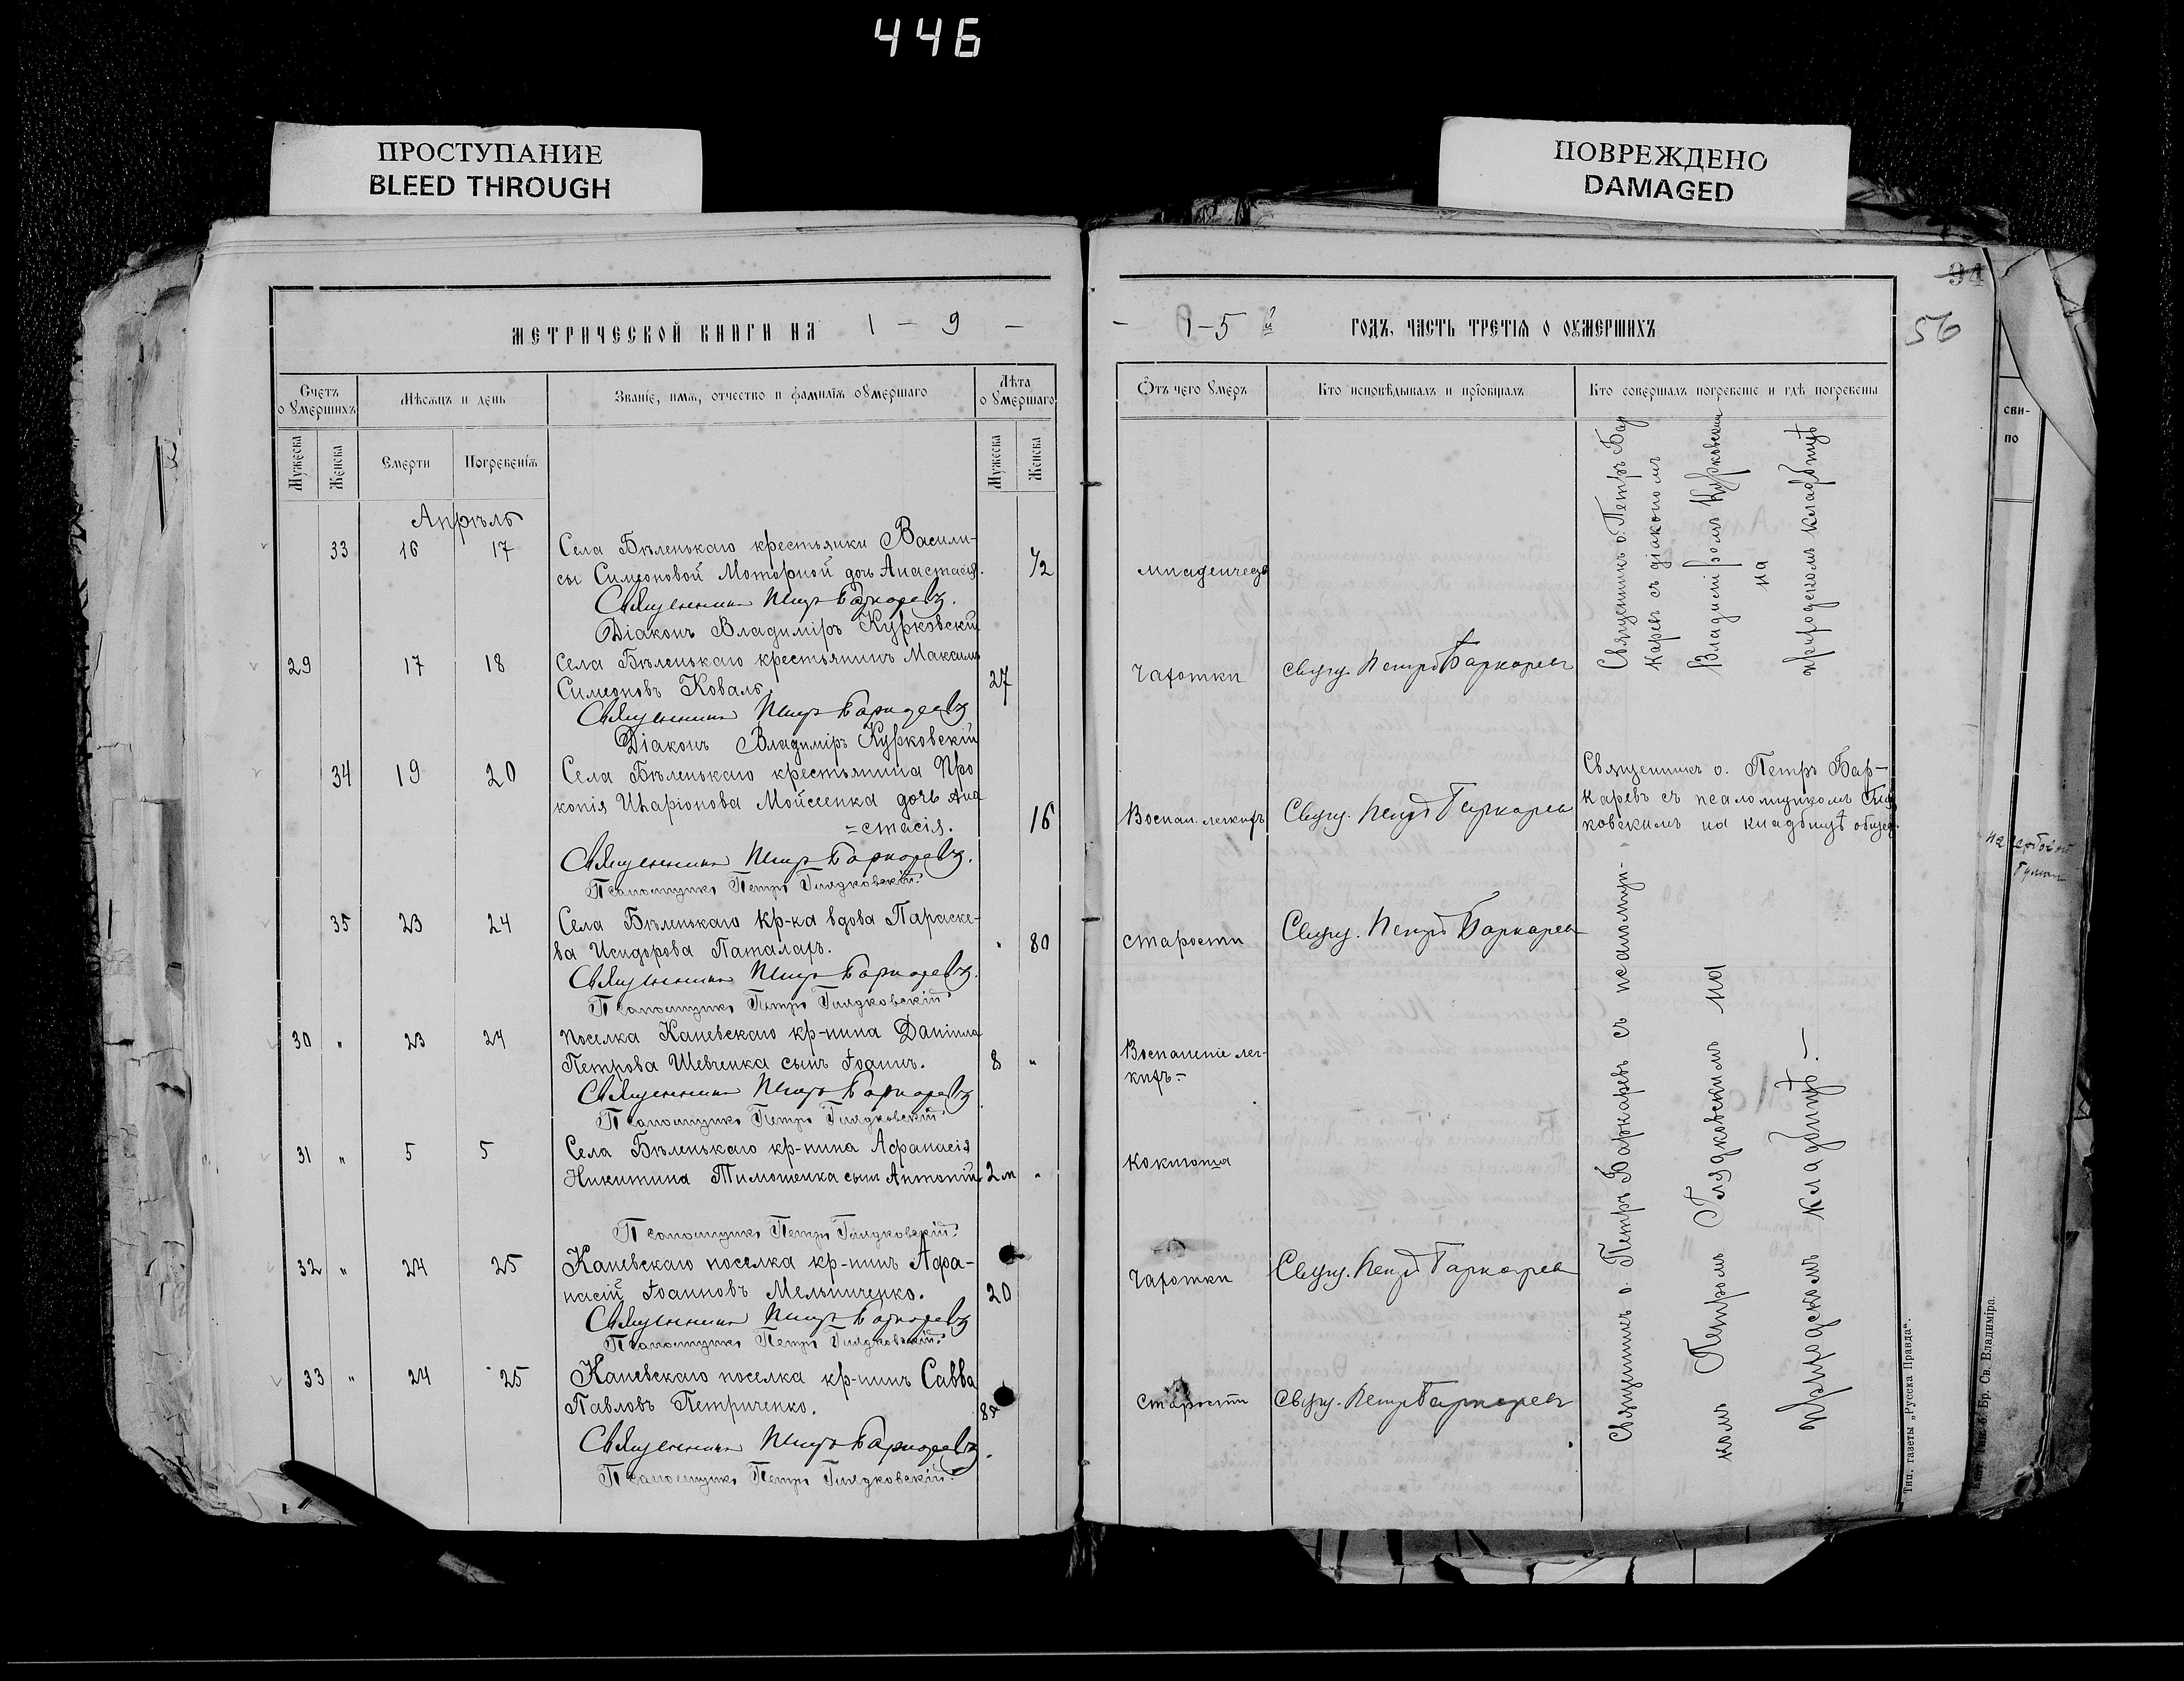 446
ПРОСТУПАНИЕ
BLEED THROUGH
ПОВРЕЖДЕНО
DAMAGED
94
56
МЕТРИЧЕСКОЙ КНИГИ НА 1 – 9 –
Счетъ о умершихъ
Мѣсяцъ и день
Званіе, имя, отчество и фамилія оумершаго
Лѣта оумершаго
Мужеска
Женска
Смерти
Погребенія
Мужеска
Женска
Апрѣль
33 16 17 Села Бѣленькаго крестьянки Васили-
сы Симеоновой Моторной дочь Анастасія. 1/2
Священникъ Петръ Баркаревъ.
Діаконъ Владиміръ Курковскій
29 17 18 Села Бѣленькаго крестьянинъ Максимъ
Симеоновъ Коваль. 27
Священникъ Петръ Баркаревъ
Діаконъ Владиміръ Курковскій
34 19 20 Села Бѣленькаго крестьянина Про
копія Иларіонова Мойсеенка дочь Ана
=стасія. 16
Священникъ Петръ Баркаревъ.
Псаломщикъ Петръ Глядковскій.
35 23 24 Села Бѣленькаго кр-ка вдова Параске-
ва Исидорова Паталахъ. " 80
Священникъ Петръ Баркаревъ.
Псаломщикъ Петръ Глядковскій
30 " 23 24 Поселка Каневскаго кр-нина Даніила
Петрова Шевченка сынъ Іоаннъ. 8 "
Священникъ Петръ Баркаревъ
Псаломщикъ Петръ Глядковскій
31 " 5 5 Села Бѣленькаго кр-нина Афанасія
Никитина Тимошенка сынъ Антоній 2 м "
Псаломщикъ Петръ Глядковскій
32 " 24 25 Каневскаго поселка кр-нинъ Афа-
насій Іоанновъ Мельниченко. 20
Священникъ Петръ Баркаревъ
Псаломщикъ Петръ Глядковскій
33 " 24 25 Каневскаго поселка кр-нинъ Савва
Павловъ Петриченко.
Священникъ Петръ Баркаревъ.
Псаломщикъ Петръ Глядковскій
– 1-5 й ГОДЪ, ЧАСТЬ ТРЕТІЯ О ОУМЕРШИХЪ
Отъ чего умеръ
Кто исповѣдывалъ и пріобщалъ
Кто совершалъ погребеніе и гдѣ погребены
младенческ
Чахотки Свящ. Петръ Баркаревъ
Воспал. легкихъ Свящ. Петръ Баркаревъ
старости Свящ. Петръ Баркаревъ
Воспаленіе лег-
кихъ.–
коклюша
Чахотки Свящ. Петръ Баркаревъ
Старости Свящ. Петръ Баркаревъ
Священникъ о. Петръ Бар
каревъ съ діакономъ
Владиміромъ Курковскимъ
на
приходскомъ кладбищѣ
Священникъ о. Петръ Бар-
каревъ съ псаломщикомъ Гляд
ковскимъ на кладбищѣ общес.
Священникъ о. Петръ Баркаревъ съ псаломщи-
комъ Петромъ Глядковскимъ на
приходскомъ кладбищѣ.–
Тип. газеты „Русская Правда“.
Бр. Св. Владиміра.
сви-
по